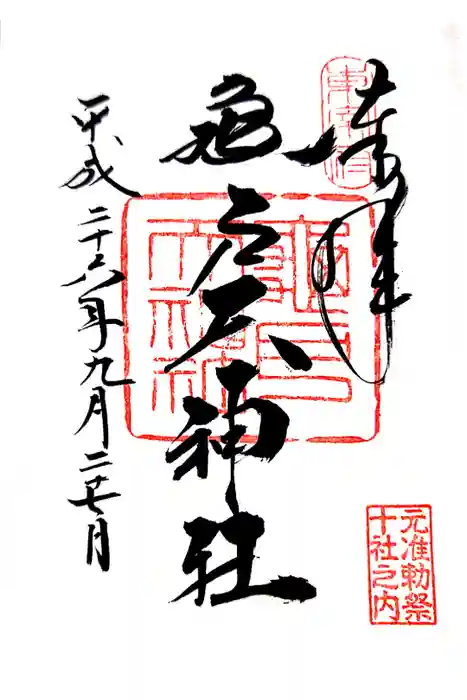 奉拝
亀戸天神社
平成二十六年九月二十七日
亀戸天神社
元准勅祭
十社之内